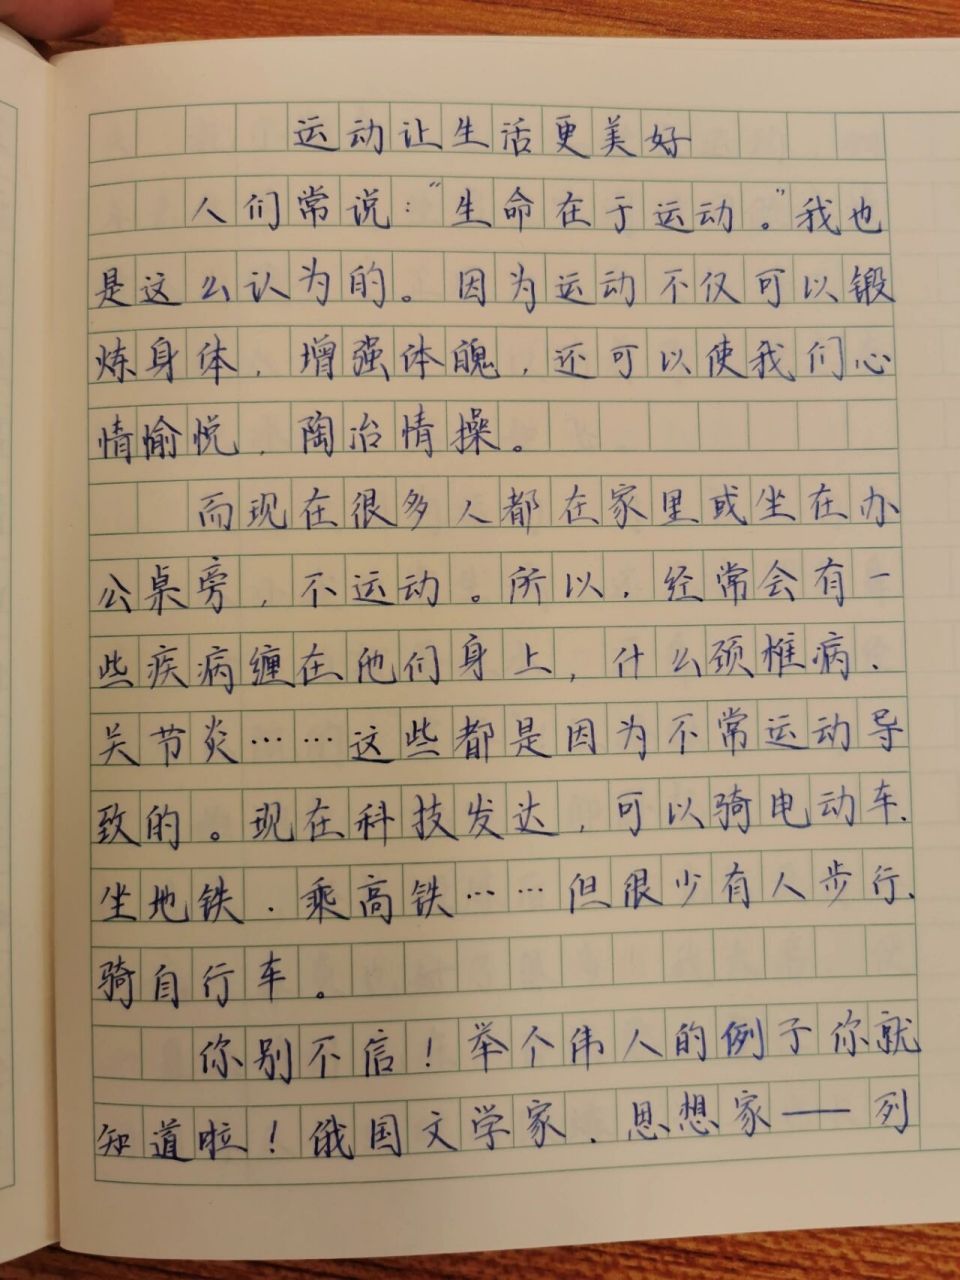 运动让生活更美好
人们常说：“生命在于运动。”我也
是这么认为的。因为运动不仅可以锻
炼身体，增强体魄，还可以使我们心
情愉悦，陶冶情操。
而现在很多人都在家里或坐在办
公桌旁，不运动。所以，经常会有一
些疾病缠在他们身上，什么颈椎病、
关节炎……这些都是因为不常运动导
致的。现在科技发达，可以骑电动车、
坐地铁、乘高铁……但很少有人步行、
骑自行车。
你别不信！举个伟人的例子你就
知道啦！俄国文学家、思想家——列